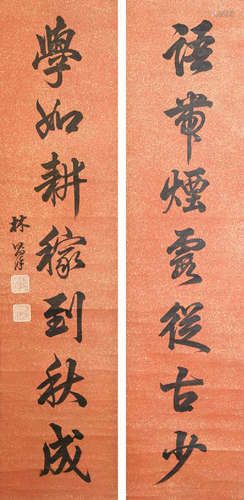 語帶煙霞從古少
學如耕稼到秋成
林則徐